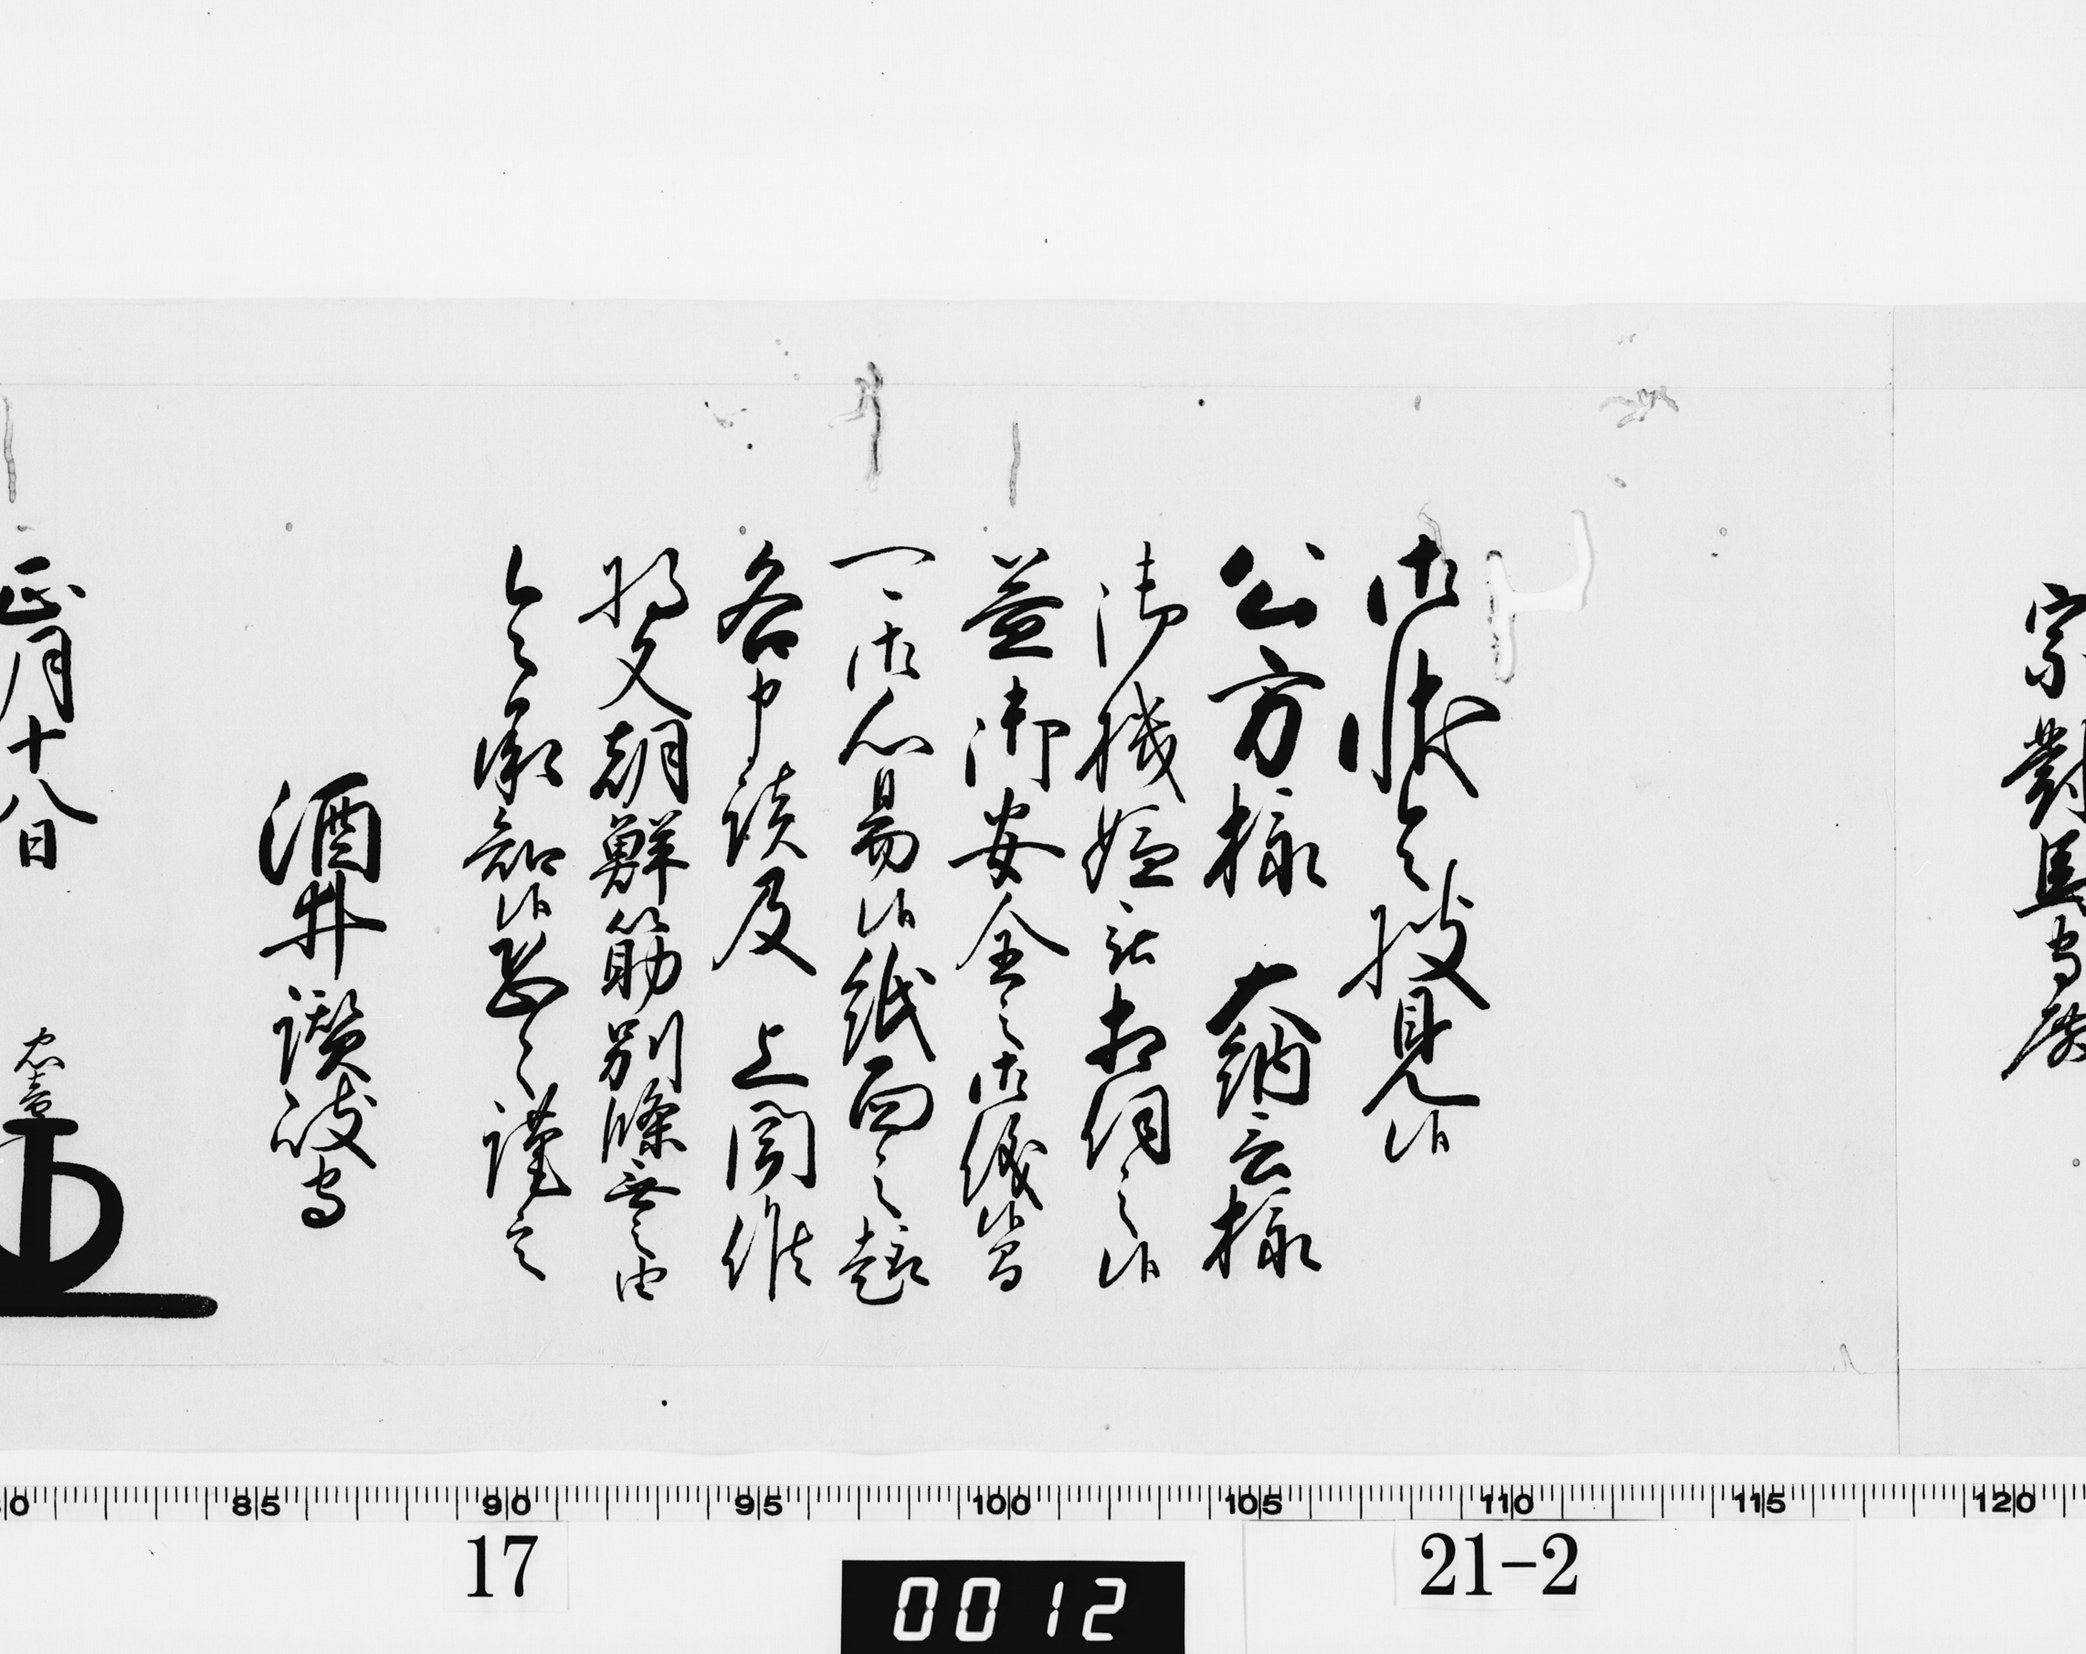 宗對馬守殿
御状令披見候
公方様　大納言様
御機嫌被相伺之候
益御安全之御儀候間
可御心易候紙面之趣
各申談及　上聞候
将又朝鮮筋別條無之由
令承知候恐々謹言
酒井讃岐守
正月十八日
忠音
80 85 90 95 100 105 110 115 120
17
21-2
0012